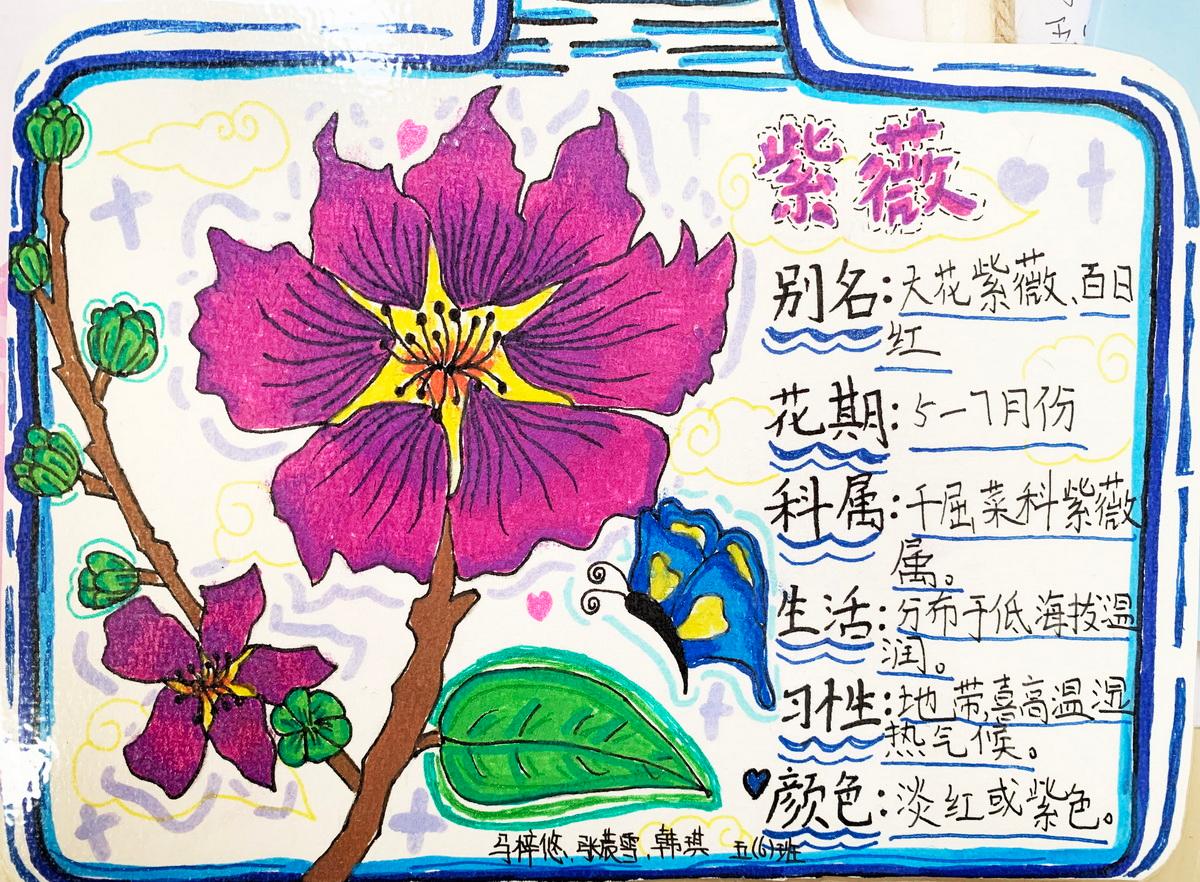 紫薇
别名:大花紫薇、百日
红
花期:5-7月份
科属:千屈菜科紫薇
属。
生活:分布于低海拔温
润。
习性:地带,喜高温湿
热气候。
颜色:淡红或紫色。
马梓悠、张 雪、韩琪 五(6)班